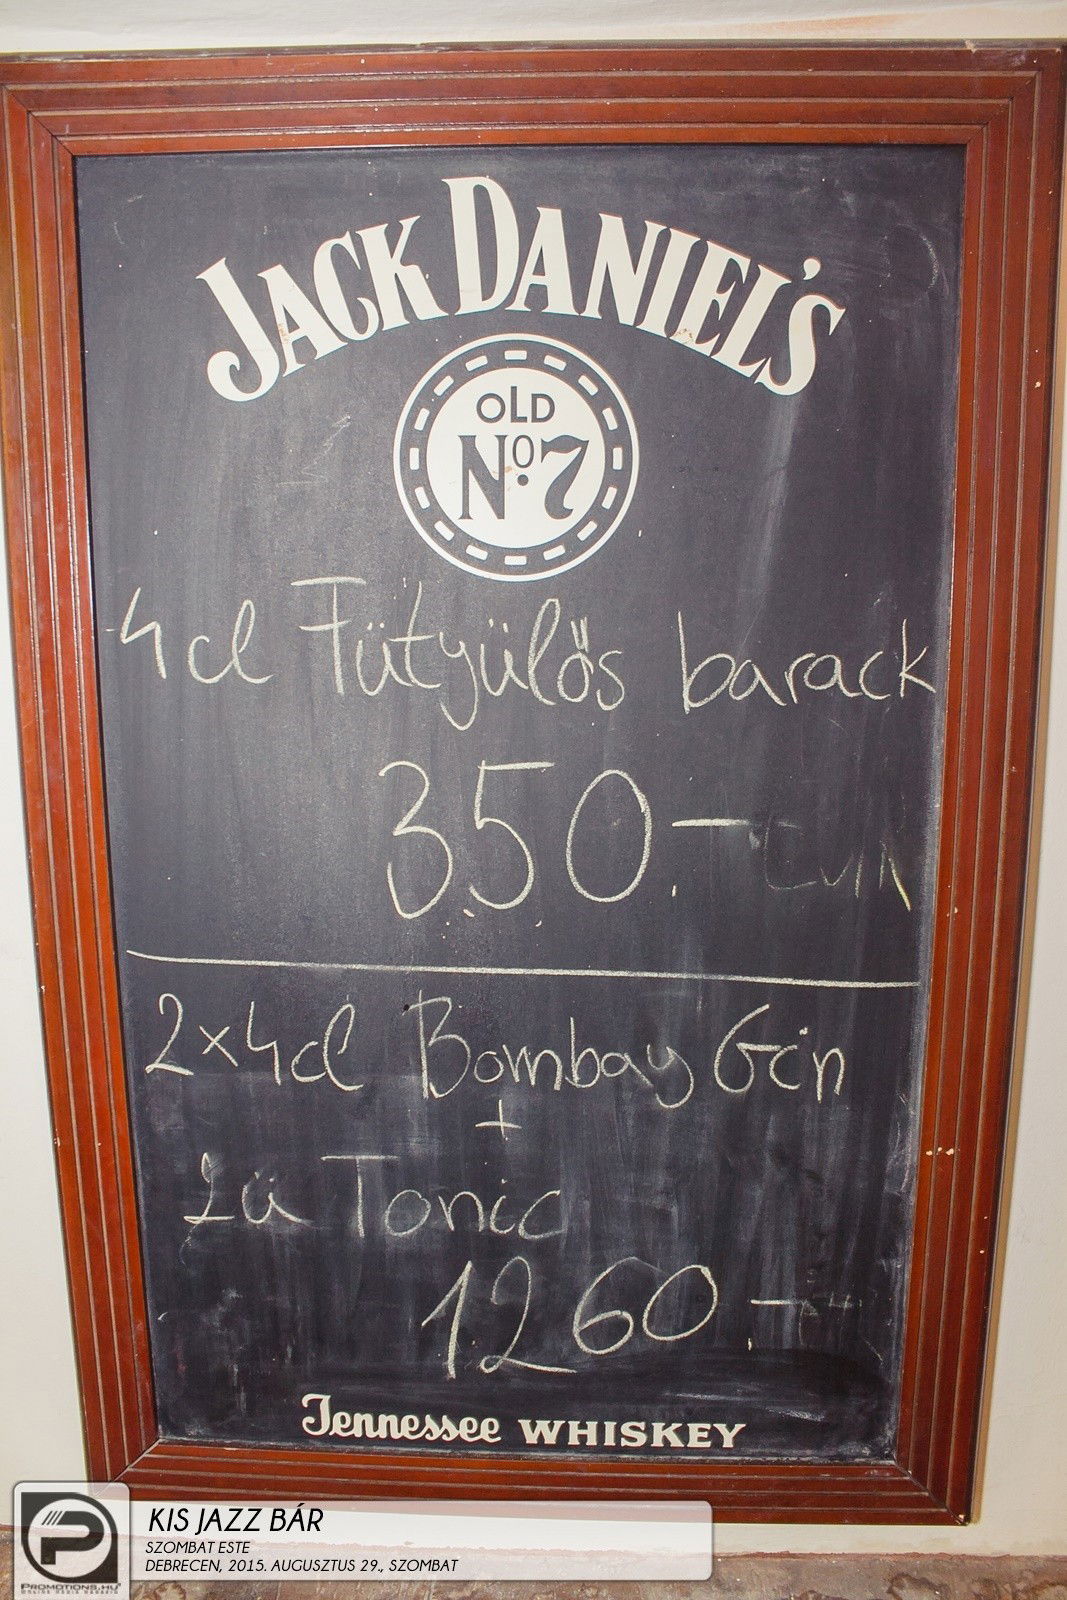 JACK DANIEL'S
OLD
No. 7
4cl Fütyülős barack
350.-
2x4cl Bombay Gin
+
2ü Tonic
1260.-
Tennessee WHISKEY
KIS JAZZ BÁR
SZOMBAT ESTE
DEBRECEN, 2015. AUGUSZTUS 29., SZOMBAT
PROMOTIONS.HU
ONLINE MEDIA MAGAZIN